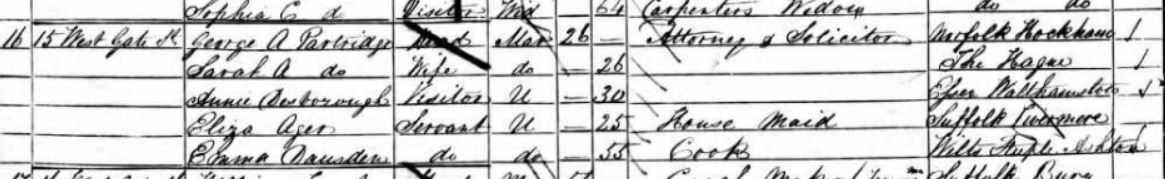 Sophia C do Visitor Wid 64 Carpenters Widow do do
16 15 West Gate St George A Partridge Head Mar 26 — Attorney & Solicitor Norfolk Hockham 1
Sarah A do Wife do — 26 The Hague 1
Annie Desborough Visitor U — 30 Essex Walthamstow
Eliza Ager Servant U — 25 House Maid Suffolk Livermere
Emma Dausden do do — 55 Cook Wilts Steeple Ashton
Suffolk Bury